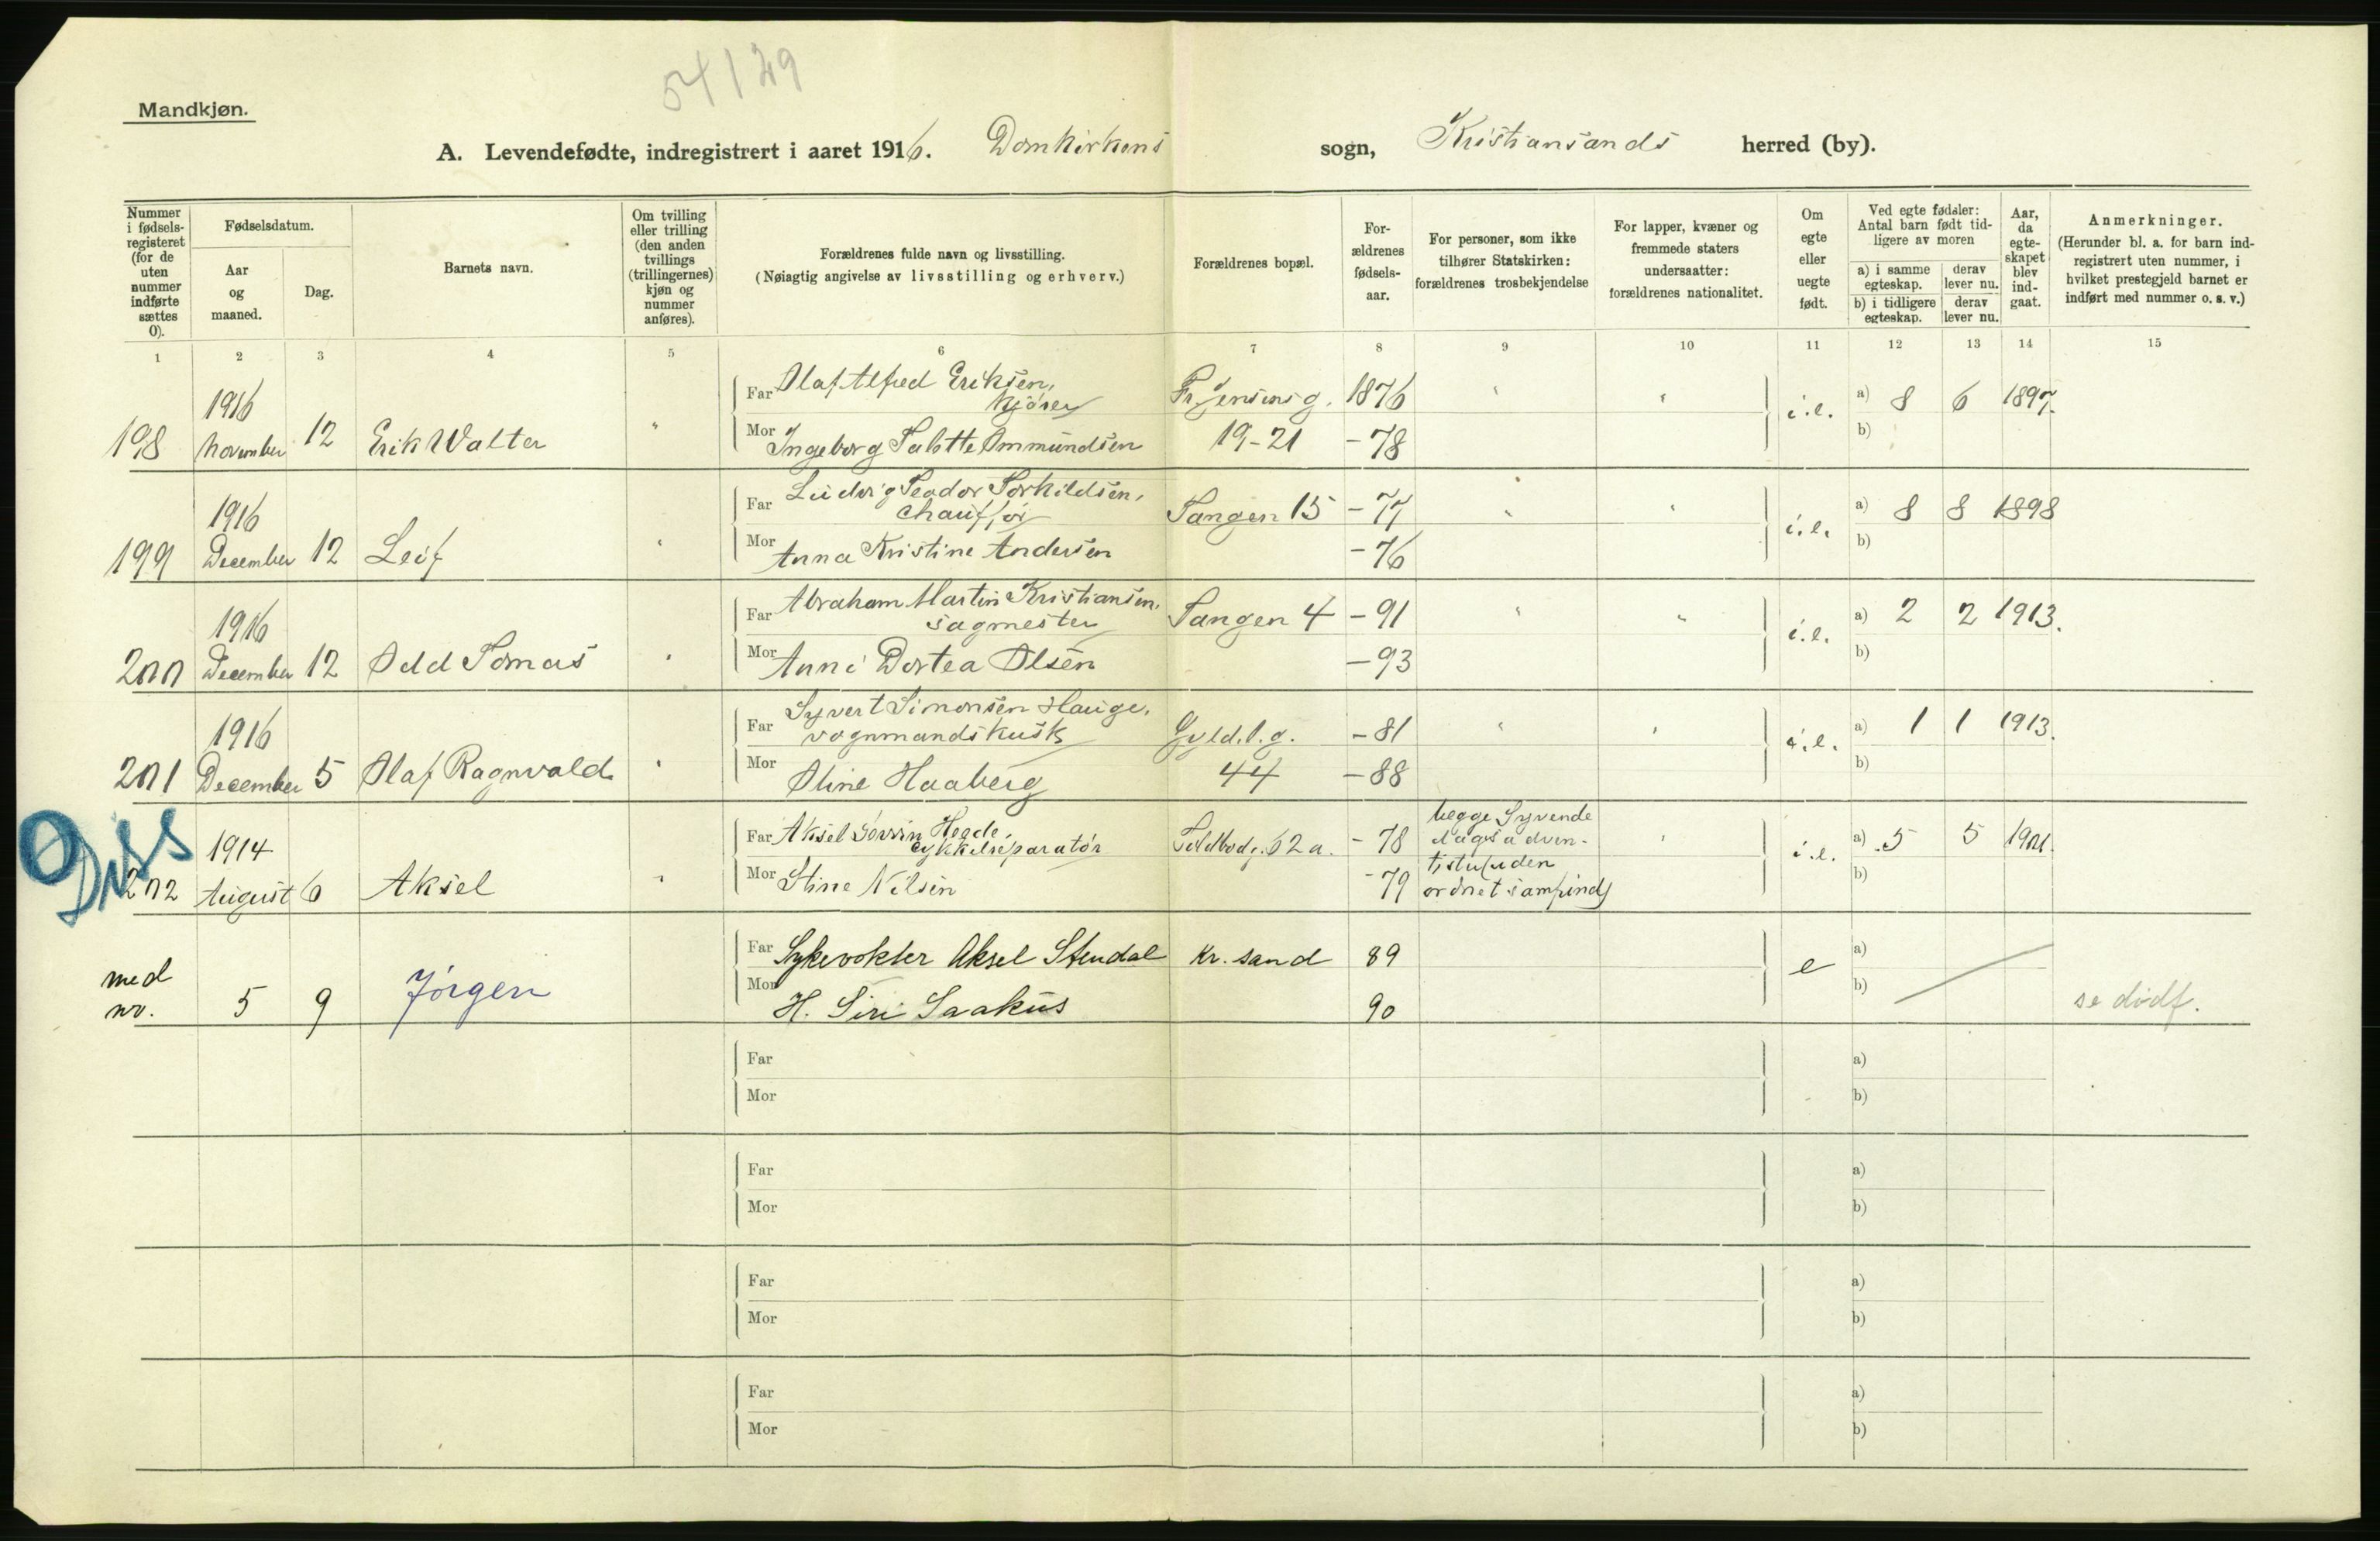 54/29
Mandkjøn.
A. Levendefødte, indregistrert i aaret 1916. Domkirkens sogn, Kristiansands herred (by).
Nummer i fødselsregisteret (for de uten nummer indførte sættes 0).
Fødselsdatum.
Aar og maaned.
Dag.
Barnets navn.
Om tvilling eller trilling (den anden tvillings (trillingernes) kjøn og nummer anføres).
Forældrenes fulde navn og livsstilling.
(Nøiagtig angivelse av livsstilling og erhverv.)
Forældrenes bopæl.
Forældrenes fødselsaar.
For personer, som ikke tilhører Statskirken: forældrenes trosbekjendelse
For lapper, kvæner og fremmede staters undersaatter: forældrenes nationalitet.
Om egte eller uegte født.
Ved egte fødsler: Antal barn født tidligere av moren
a) i samme egteskap. derav lever nu.
b) i tidligere egteskap. derav lever nu.
Aar, da egteskapet blev indgaat.
Anmerkninger.
(Herunder bl. a. for barn indregistrert uten nummer, i hvilket prestegjeld barnet er indført med nummer o. s. v.)
1 2 3 4 5 6 7 8 9 10 11 12 13 14 15
198 1916 November 12 Erik Walter " Far Olaf Alfred Eriksen, kjører Fr. Jensens g. 1876 " " i.e. a) 8 6 1897.
Mor Ingeborg Talotte Ommundsen 19-21 -78 b)
199 1916 December 12 Leif " Far Ludvig Teodor Torkildsen, chauffør Tangen 15 -77 " " i.e. a) 8 8 1898
Mor Anna Kristine Andersen -76 b)
200 1916 December 12 Odd Tomas " Far Abraham Martin Kristiansen, sagmester Tangen 4 -91 " " i.e. a) 2 2 1913.
Mor Anne Dortea Olsen -93 b)
201 1916 December 5 Olaf Ragnvald " Far Syvert Simonsen Hauge, vognmandskusk Gyld.l.g. -81 " " i.e. a) 1 1 1913.
Mor Oline Haaberg 44 -88 b)
Diss
202 1914 August 6 Aksel " Far Aksel Hegde, cykkelreparatør Toldbodg. 62a. -78 begge Syvende dags adventister uden ordnet samfund " i.e. a) 5 5 1901.
Mor Stine Nilsen -79 b)
med nr. 5 9 Jörgen Far Sykevokter Aksel Stendal Kr. sand 89 e a)
Mor H. Siri Saakus 90 b) se dødf.
Far a)
Mor b)
Far a)
Mor b)
Far a)
Mor b)
Far a)
Mor b)